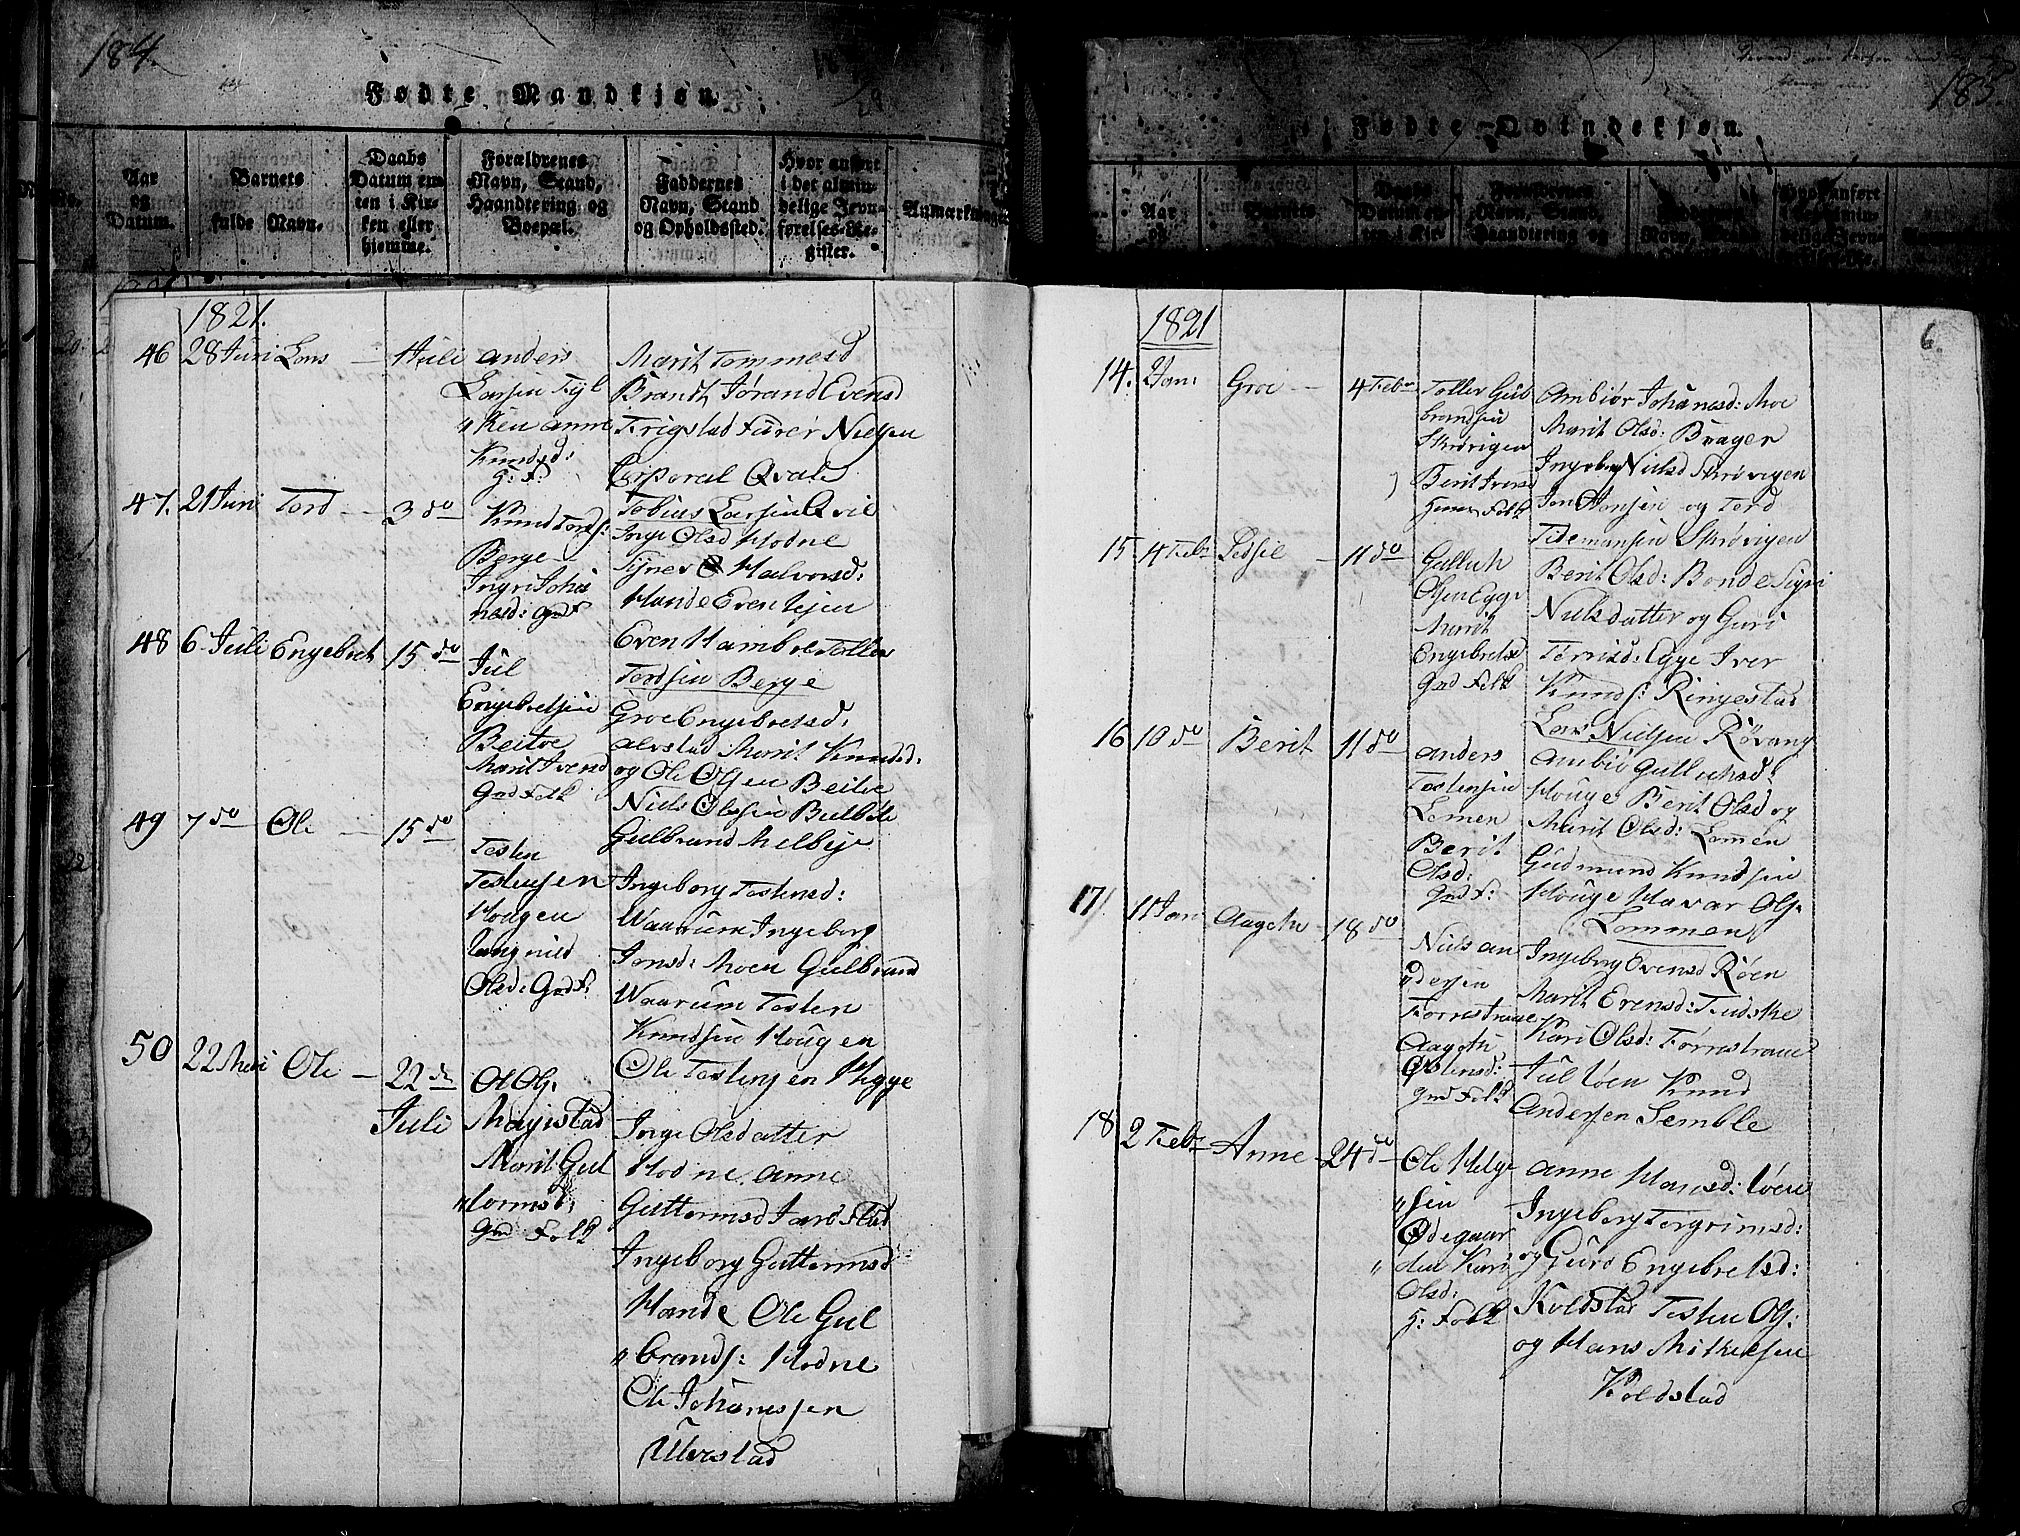 184.
Fødte Mandkjøn.
No.
Aar
og
Datum.
Barnets
fulde Navn.
Daabs
Datum en-
ten i Kir-
ken eller
hjemme.
Forældrenes
Navn, Stand,
Haandtering og
Boepæl.
Faddernes
Navn, Stand
og Opholdssted.
Hvor anført
i det almin-
delige Jevn-
førelses-Re-
gister.
Anmærkninger
1821.
46 28 Juni Lars — 1 Juli
anders
Larsen
Ken anne
Knudsd:
H: F.
Marit Tommesd
Brandt Jørand Evensd
Trigstad Furer Nielsen
Corporal Qvale
Tobias Larsen Qvale
47. 21 Juni Tord — 3 do
Knud Tords:
Berge
Ingri Joha
nesd: Grd F
Inge Olsd Hodne
Signe Halvorsd:
Hande Even
Even Hambre Toller
Tordsen Berge
48 6 Juli Engebret 15 do
Jul
Engebretsen
Beitoe
Marit Ivensd
Grd Folk
Groe Engebretsd:
alvstad Marit Knudsd:
og Ole Olsen Beitoe
Niels Olesen Bulbøle
Gulbrand Melbye
49 7 do Ole — 15 do
Tosten
Tostensen
Hougen
Langnild
Olsd: Grd F:
Ingeborg Tostensd:
Waarum Ingeborg
Jonsd: Moen Gulbrand
Waarum Tosten
Knudsen Hougen
Ole Tostensen Hegge
50 22 Mai Ole — 22 de
Juli
Ol Ols.
Magistad
Marit Gul
tormsd:
Grd Folk
Inge Olsdatter
Hodne anne
Guttormsd Jarstad
Ingeborg Guttormsd
Hande Ole Gul
brands: Hodne
Ole Johannessen
Ulverstad
185.
Fødte Qvindekjøn.
Aar
og
Barnets
Daabs
Datum en-
ten i Kir-
Forældrenes
Navn, Stand,
Haandtering og
Faddernes
Navn, Stand
Hvor anført
i det almin-
delige Jevn-
førelses-Re-
1821
6.
14. 2 Jan: Groe — 4 Febr
Toller Gul
brandsen
Skrøvigen
Berit Iversd
Huus Folk
Ambiør Johanesd: Moe
Marit Olsd: Brager
Ingeborg Nielsd Skrøvigen
Jon Hansen og Tord
Tidemansen Skrøvigen
15 4 Febr Sidsie — 11 do
Gulluk
Olsen Egge
Marit
Engebretsd
Grd Folk
Berit Olsd: Bonde Sigri
Nielsdatter og Guri
Torrisd: Egge Iver
Knuds: Ringestad
Lars Nielsen Røvang
16 10 do Berit 11 do
anders
Tostensen
Lomen
Berit
Olsd:
Grd F:
Ambiø Gulluksd:
Houge Berit Olsd og
Marit Olsd: Lomen
Gudmund Knudsen
Houge Havar Ols.
Lommen
17 11 Jan Aagothe — 18 do
Niels an
dersen
Forrestrane
Aagothe
Østensd:
Grd Folk
Ingeborg Evensd Røen
Marit Evensd: Tudske
Kari Olsd: Førrestrane
Jul Løen Knud
Andersen Semble
18 2 Febr Anne — 24 do
Ole Helge
sen
Ødegaar
den Kari
Olsd:
H: Folk
anne Hansd: Løen
Ingeborg Torgrimsd:
og Guro Engebretsd:
Koldstad Tosten Ols:
og Hans Mikkelsen
Koldstad